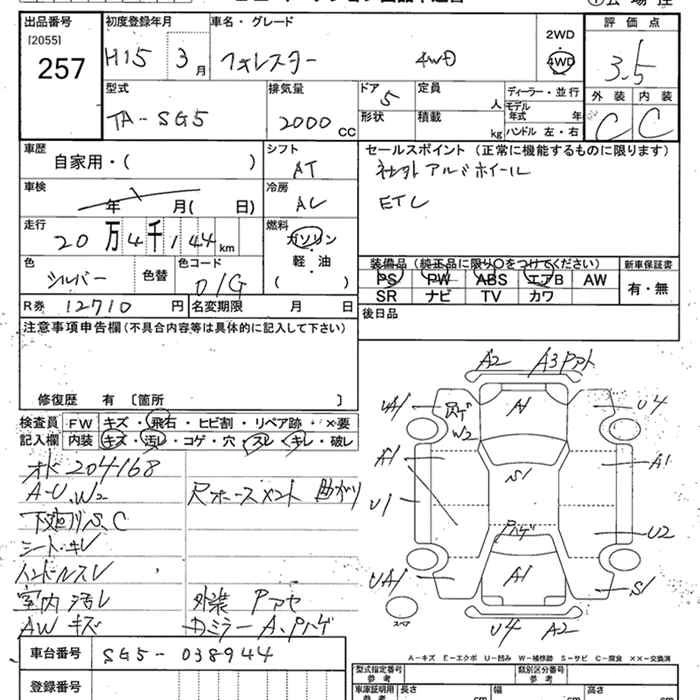 出品番号 初度登録年月 車名・グレード 2WD 評価点
[2055] H15 3月 フォレスター 4WD 4WD 3.5
257
型式 排気量 ドア 定員 ディーラー・並行 外装 内装
TA-SG5 2000cc 5 人 モデル年式 年 C C
形状 積載 kg ハンドル 左・右
車歴 シフト セールスポイント (正常に機能するものに限ります)
自家用・( ) AT 社外アルミホイール
車検 冷房 ETC
年 月( 日) AC
走行 燃料
20万4千144km ガソリン
軽・油
( )
色 色替 色コード 装備品 (純正品に限り○をつけてください) 新車保証書
シルバー 01G PS PW ABS エアB AW 有・無
SR ナビ TV カワ
R券 12710円 名変期限 月 日 後日品
注意事項申告欄(不具合内容等は具体的に記入して下さい)
修復歴 有 〔箇所 〕
検査員 FW キズ・飛石・ヒビ割・リペア跡・×要
記入欄 内装 キズ・汚レ・コゲ・穴・スレ・キレ・破レ
オド204168
A-U、W2
下廻りS、C
シートキレ
ハンドルスレ
室内汚レ
AWキズ
尺ホースメント曲がり
外装 Pアセ
DミラーA、Pハゲ
A2 A3Pアト
UA1 Pハゲ W2 A1 U4
A1 S1 A1
U1 U2
Pハゲ
UA1 A1 S1
スペア U4 A2
A-キズ E-エクボ U-凹み W-補修跡 S-サビ C-腐食 XX-交換済
車台番号 SG5-038944
登録番号
型式指定番号 類別区分番号
車庫証明用参考 長さ cm 幅 cm 高さ cm